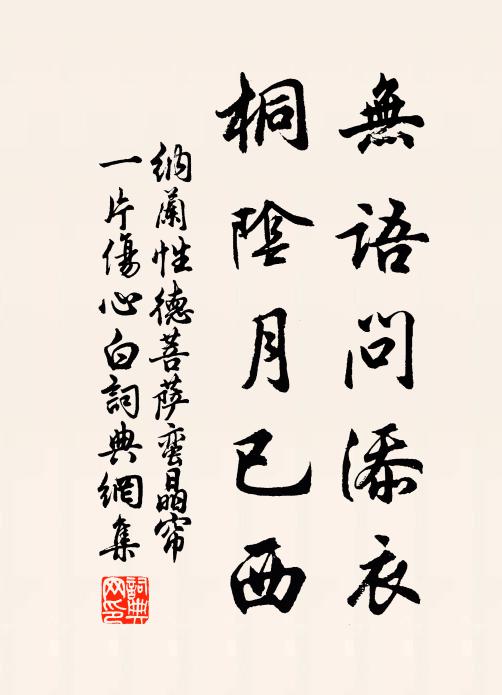 無語問添衣
桐陰月已西
納蘭性德菩薩蠻晶帘
一片傷心白詞典網集
詞典
网印